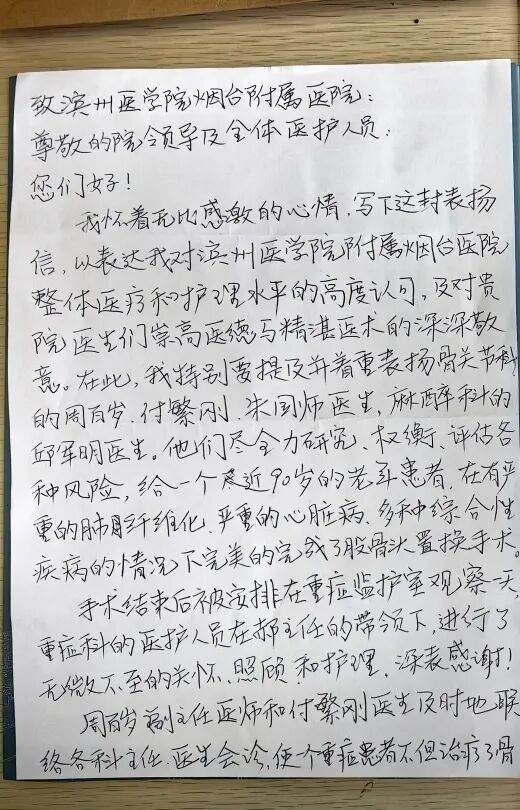 致滨州医学院烟台附属医院：
尊敬的院领导及全体医护人员：
您们好！
我怀着无比感激的心情，写下这封表扬
信，以表达我对滨州医学院附属烟台医院
整体医疗和护理水平的高度认可，及对贵
院医生们崇高医德与精湛医术的深深敬
意。在此，我特别要提及并着重表扬骨关节科
的周百岁、付繁刚、朱国师医生，麻醉科的
邱军明医生。他们尽全力研究、权衡、评估各
种风险，给一个近90岁的老年患者，在有严
重的肺纤维化、严重的心脏病、多种综合性
疾病的情况下完美的完成了股骨头置换手术。
手术结束后被安排在重症监护室观察一天，
重症科的医护人员在郝主任的带领下，进行了
无微不至的关怀、照顾和护理，深表感谢！
周百岁副主任医师和付繁刚医生及时地联
络各科主任、医生会诊，使一个重症患者不但治疗了骨